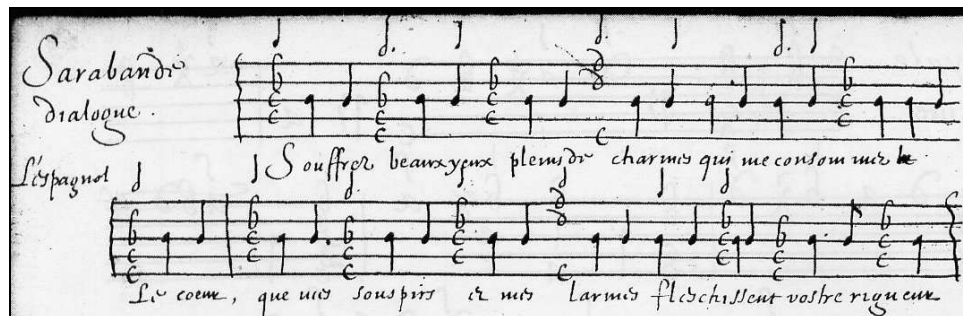 Sarabande
dialogue.
Souffrez beaux yeux pleins de charmes qui me consommez le
L'espagnol
Le coeur, que mes souspirs et mes larmes fleschissent vostre rigueur